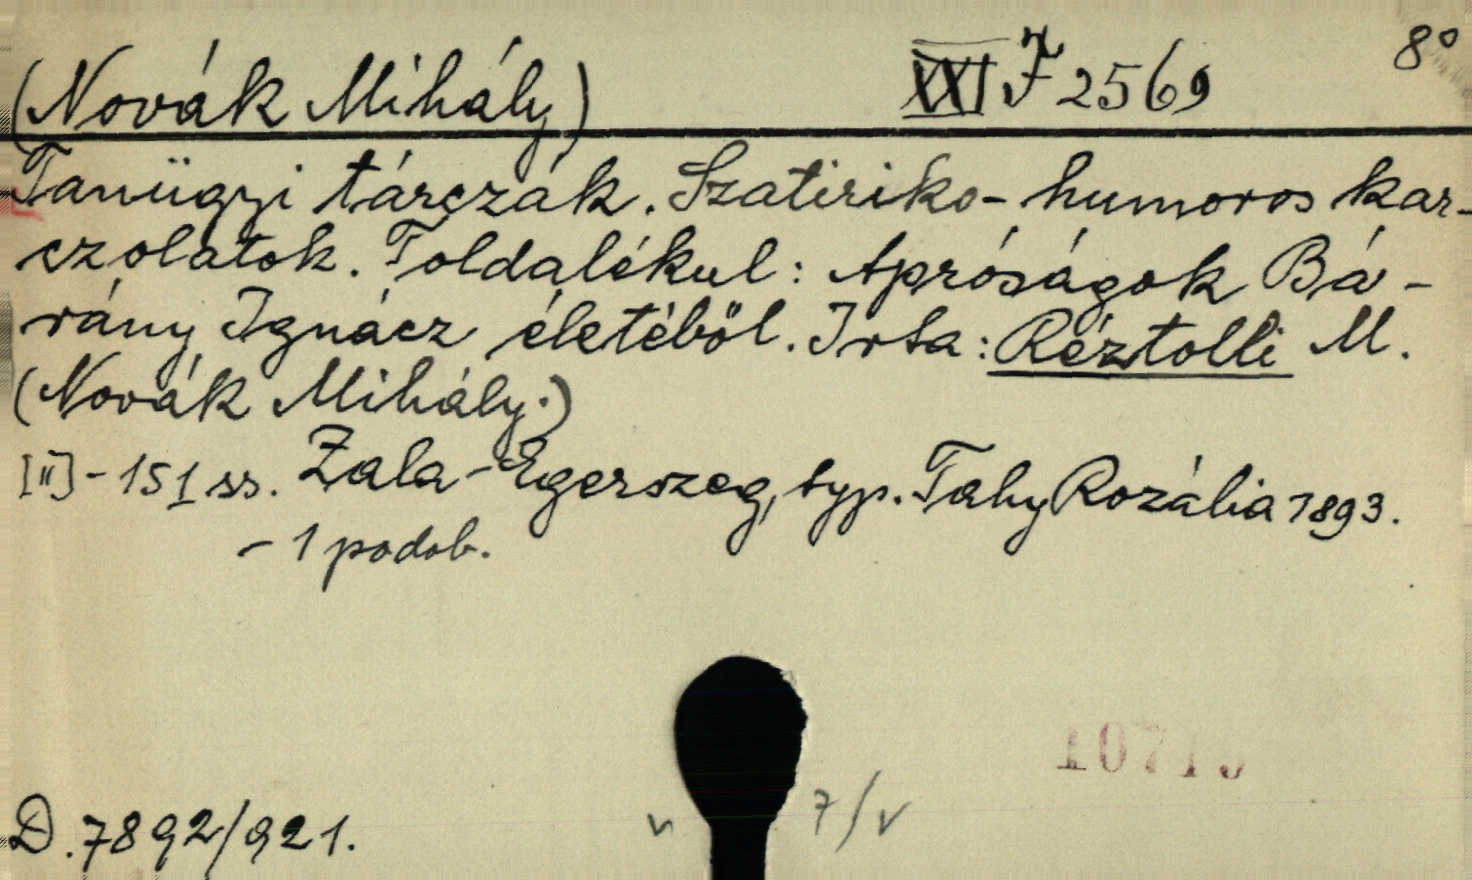 (Novák Mihály) XXI F 2569 8°
Tanügyi tárczák. Szatiriko-humoros kar-
czolatok. Toldalékul: Apróságok Bá-
rány Ignácz életéből. Irta: Réztolli M.
(Novák Mihály.)
[II]-151 ss. Zala-Egerszeg, typ. Tahy Rozália 1893.
- 1 podob.
D. 7892/921.
7/V